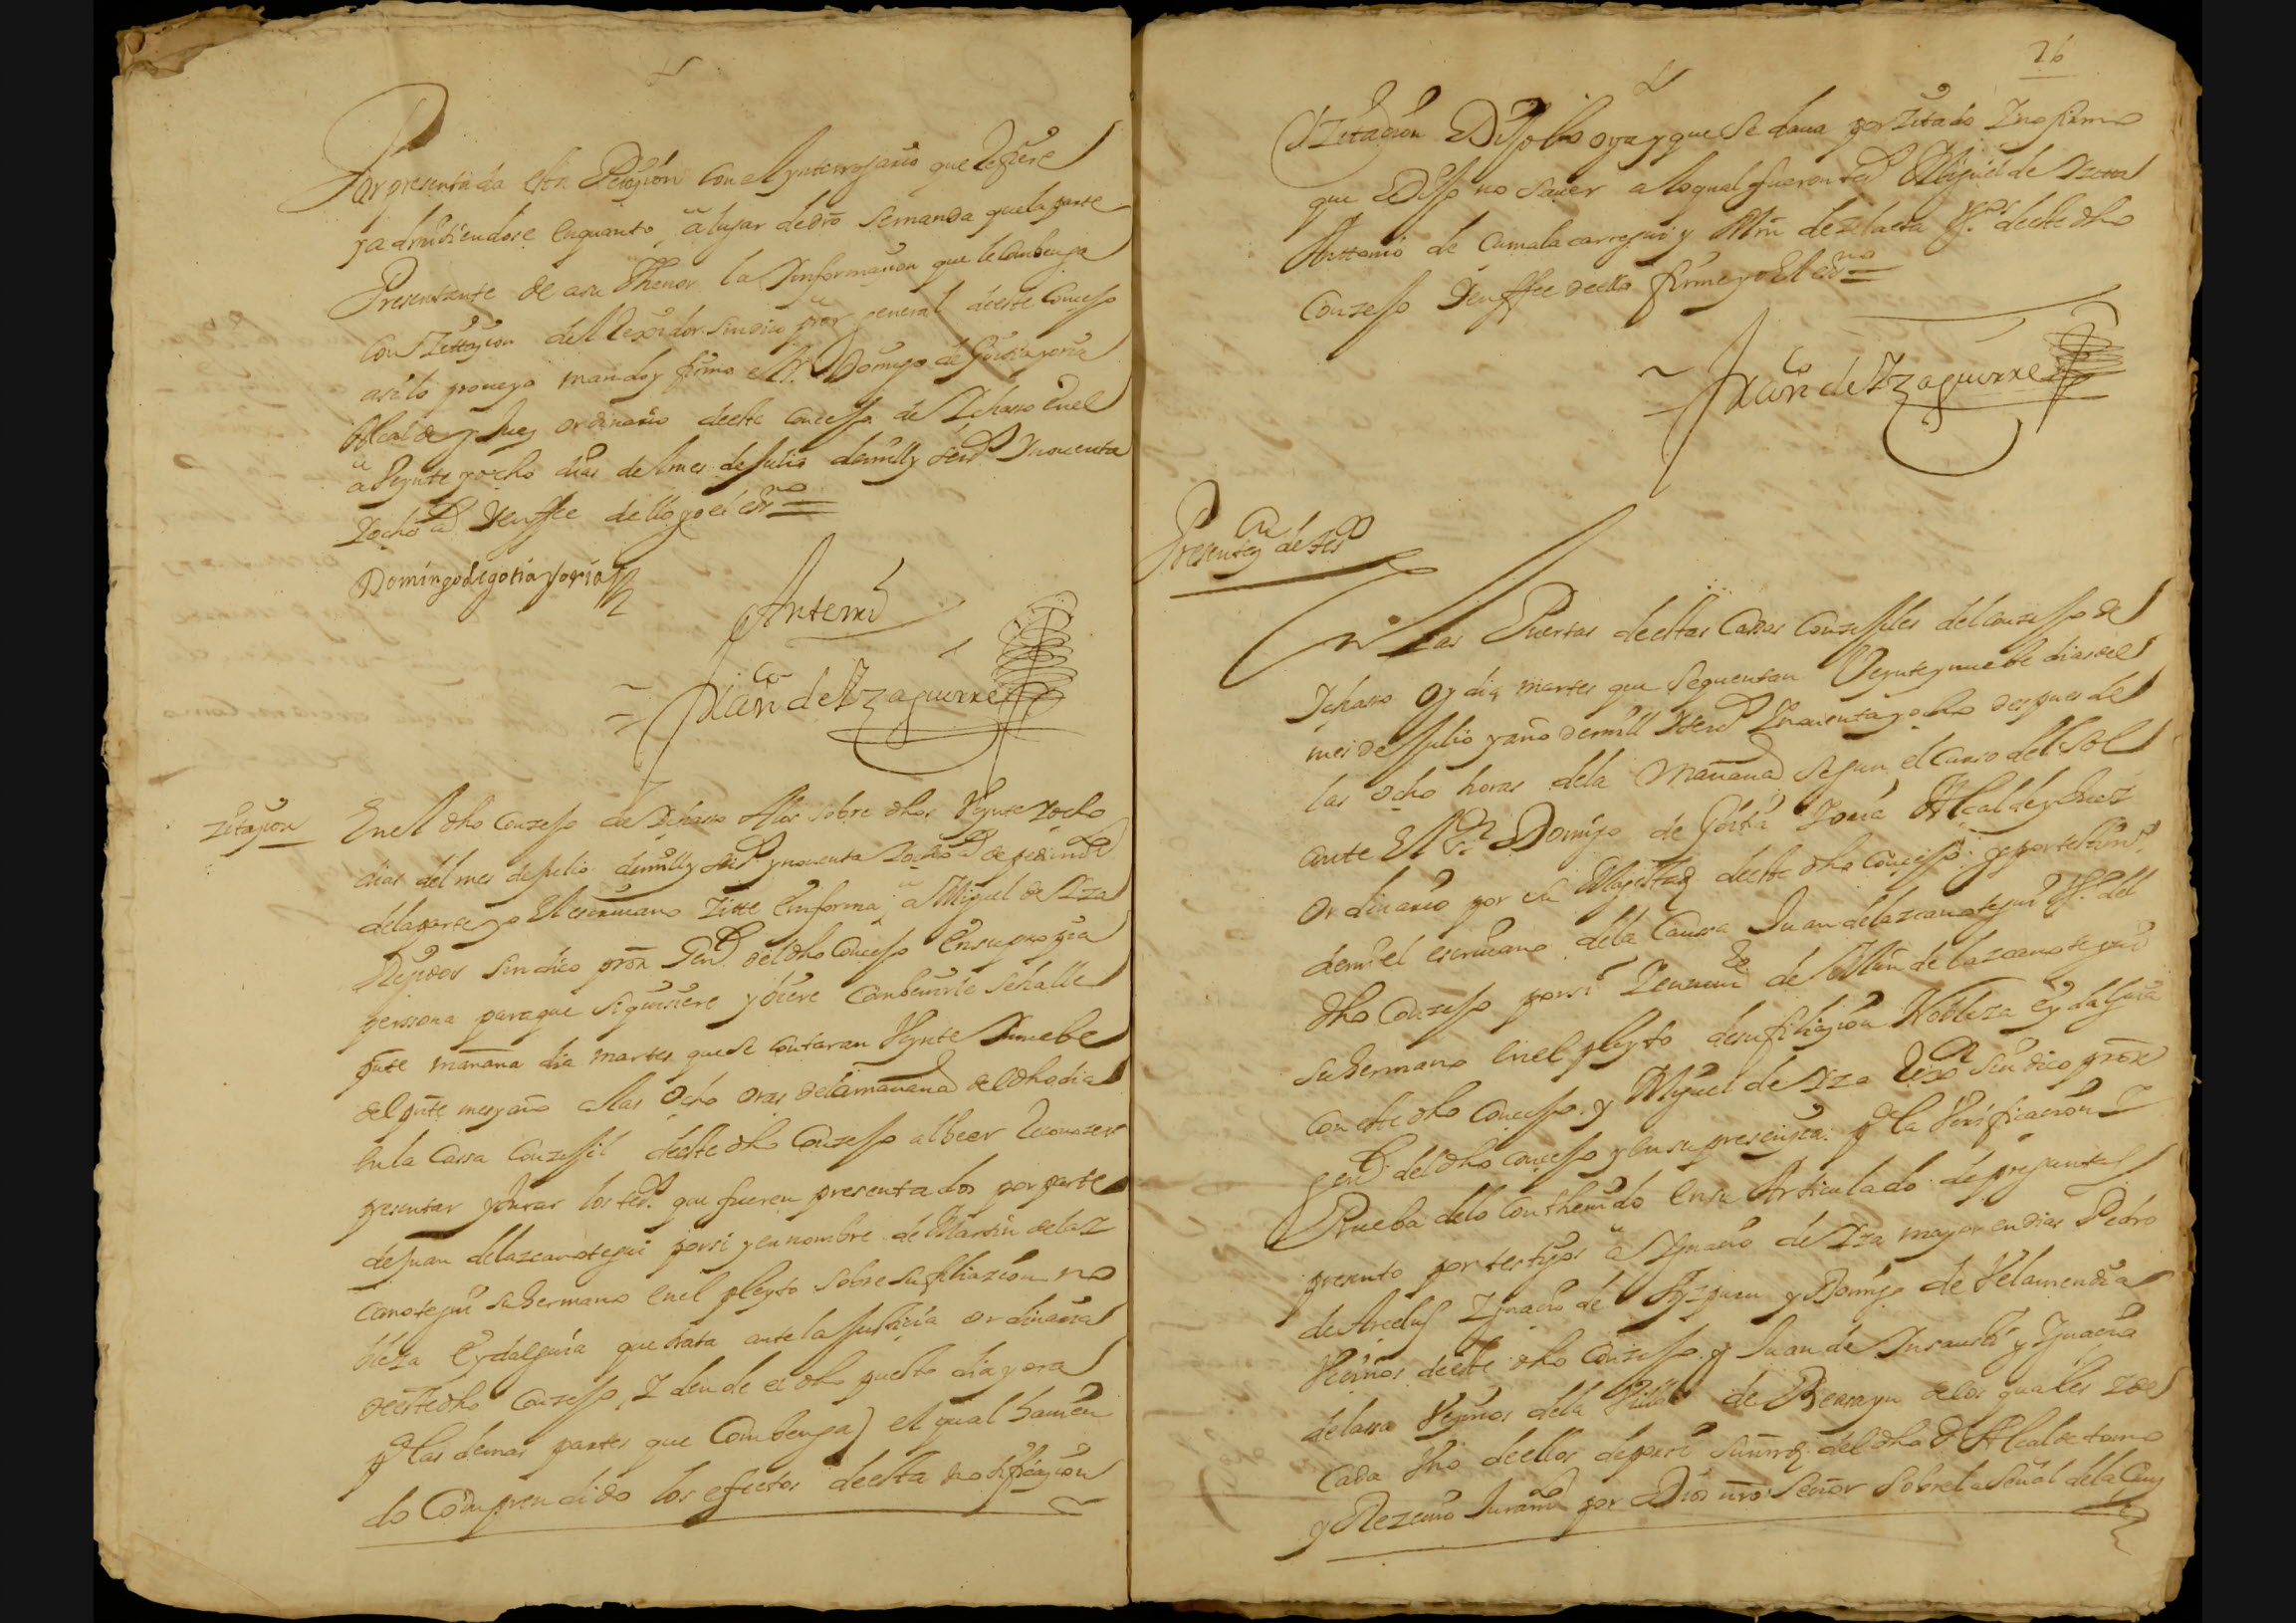 Por presentada esta Petiçion con el ynterrogatorio que refiere
y admitiendose enquanto a lugar de dro se manda que la parte
Presentante de a su thenor la Ynformaçion que le combenga
con Zittaçion del Rexidor sindico pror general deeste Concejo
assi lo proueyo mando y firmo el Sr Domingo de Goitia yoria
Alcalde y Juez ordinario deeste Concejo de Ychasso en el
a Veynte y ocho dias del mes de Julio de mill y seisos y nouenta
y ocho as y en ffee dello yo el essno
Domingo de goitia yoria
Ante mi
Juan de Yzaguirre
Zitaçion
En el dho Conzejo de Ychasso a los sobre dhos Veynte y ocho
dias del mes de Julio de mill y seisos y nouenta y ocho as de pedimto
dela parte yo el escriuano Zitte en forma a Miguel de Yza
Rexidor sindico pror Genl del dho Concejo en su propia
perssona paraque si quisiere y biere combenirle se halle
pnte mañana dia martes que se contaran Veynte y nuebe
del pnte mes y año a las ocho oras dela mañana del dho dia
en la Cassa Conzejil deeste dho Conzejo al beer reconozer
presentar y jurar los tesos que fueren presentados por parte
de Juan de lazcanotegui por si y en nombre de Martin de laz
canotegui su hermano en el pleyto sobre su filiazion no
bleza e ydalguia que trata ante la Justicia ordinaria
deeste dho Conzejo, y dende el dho puesto dia y ora
pa las demas partes que combenga) el qual hauien
do comprendido los efectos deesta notificaçion
26
y Zitaçion Dijo lo oya y que se daua por Zitado y no firmo
que Dijo no sauer a lo qual fueron tesos Miguel de
Anttonio de Cumalacarregui y Mrn de zelaeta Vos deeste dho
Conzejo y en ffee dello firme yo el essno
Juan de Yzaguirre
Presentaçon de tesos
En las Puertas deestas Cassas Conzejiles del Conzejo de
Ychasso oy dia martes que se quentan Veynte y nuebe dias del
mes de Julio y año de mill y seisos y nouenta y ocho despues de
las ocho horas dela mañana segun el curso del Sol
ante El Sr Domingo de Goitia yoria Alcalde y Juez
ordinario por su Magestad deeste dho Concejo y por testimo
demi el escriuano dela Caussa Juan de lazcanotegui Vo del
dho Conzejo por si y en nomre de Mrn de lazcanotegui
su hermano en el pleyto de su filiaçion Nobleza e ydalguia
con este dho Concejo y Miguel de Yza Rexor sindico pror
genl del dho Concejo y en su presençia pa la Verificacion y
Prueba delo Conthenido en su Articulado de preguntas
presento por testigos a Ygnacio de Yza mayor en dias Pedro
de Arcelus Ygnacio de Ayzpuru y Domingo de Velamendia
Vecinos deeste dho Conzejo y Juan de Ynsausti y Ygnacio
delassa Vezinos dela Villa de Beassayn delos quales y de
cada Vno deellos de por si su mrd del dho Sr Alcalde tomo
y Rezeuio Juramto por Dios nro Señor sobre la señal dela Cruz